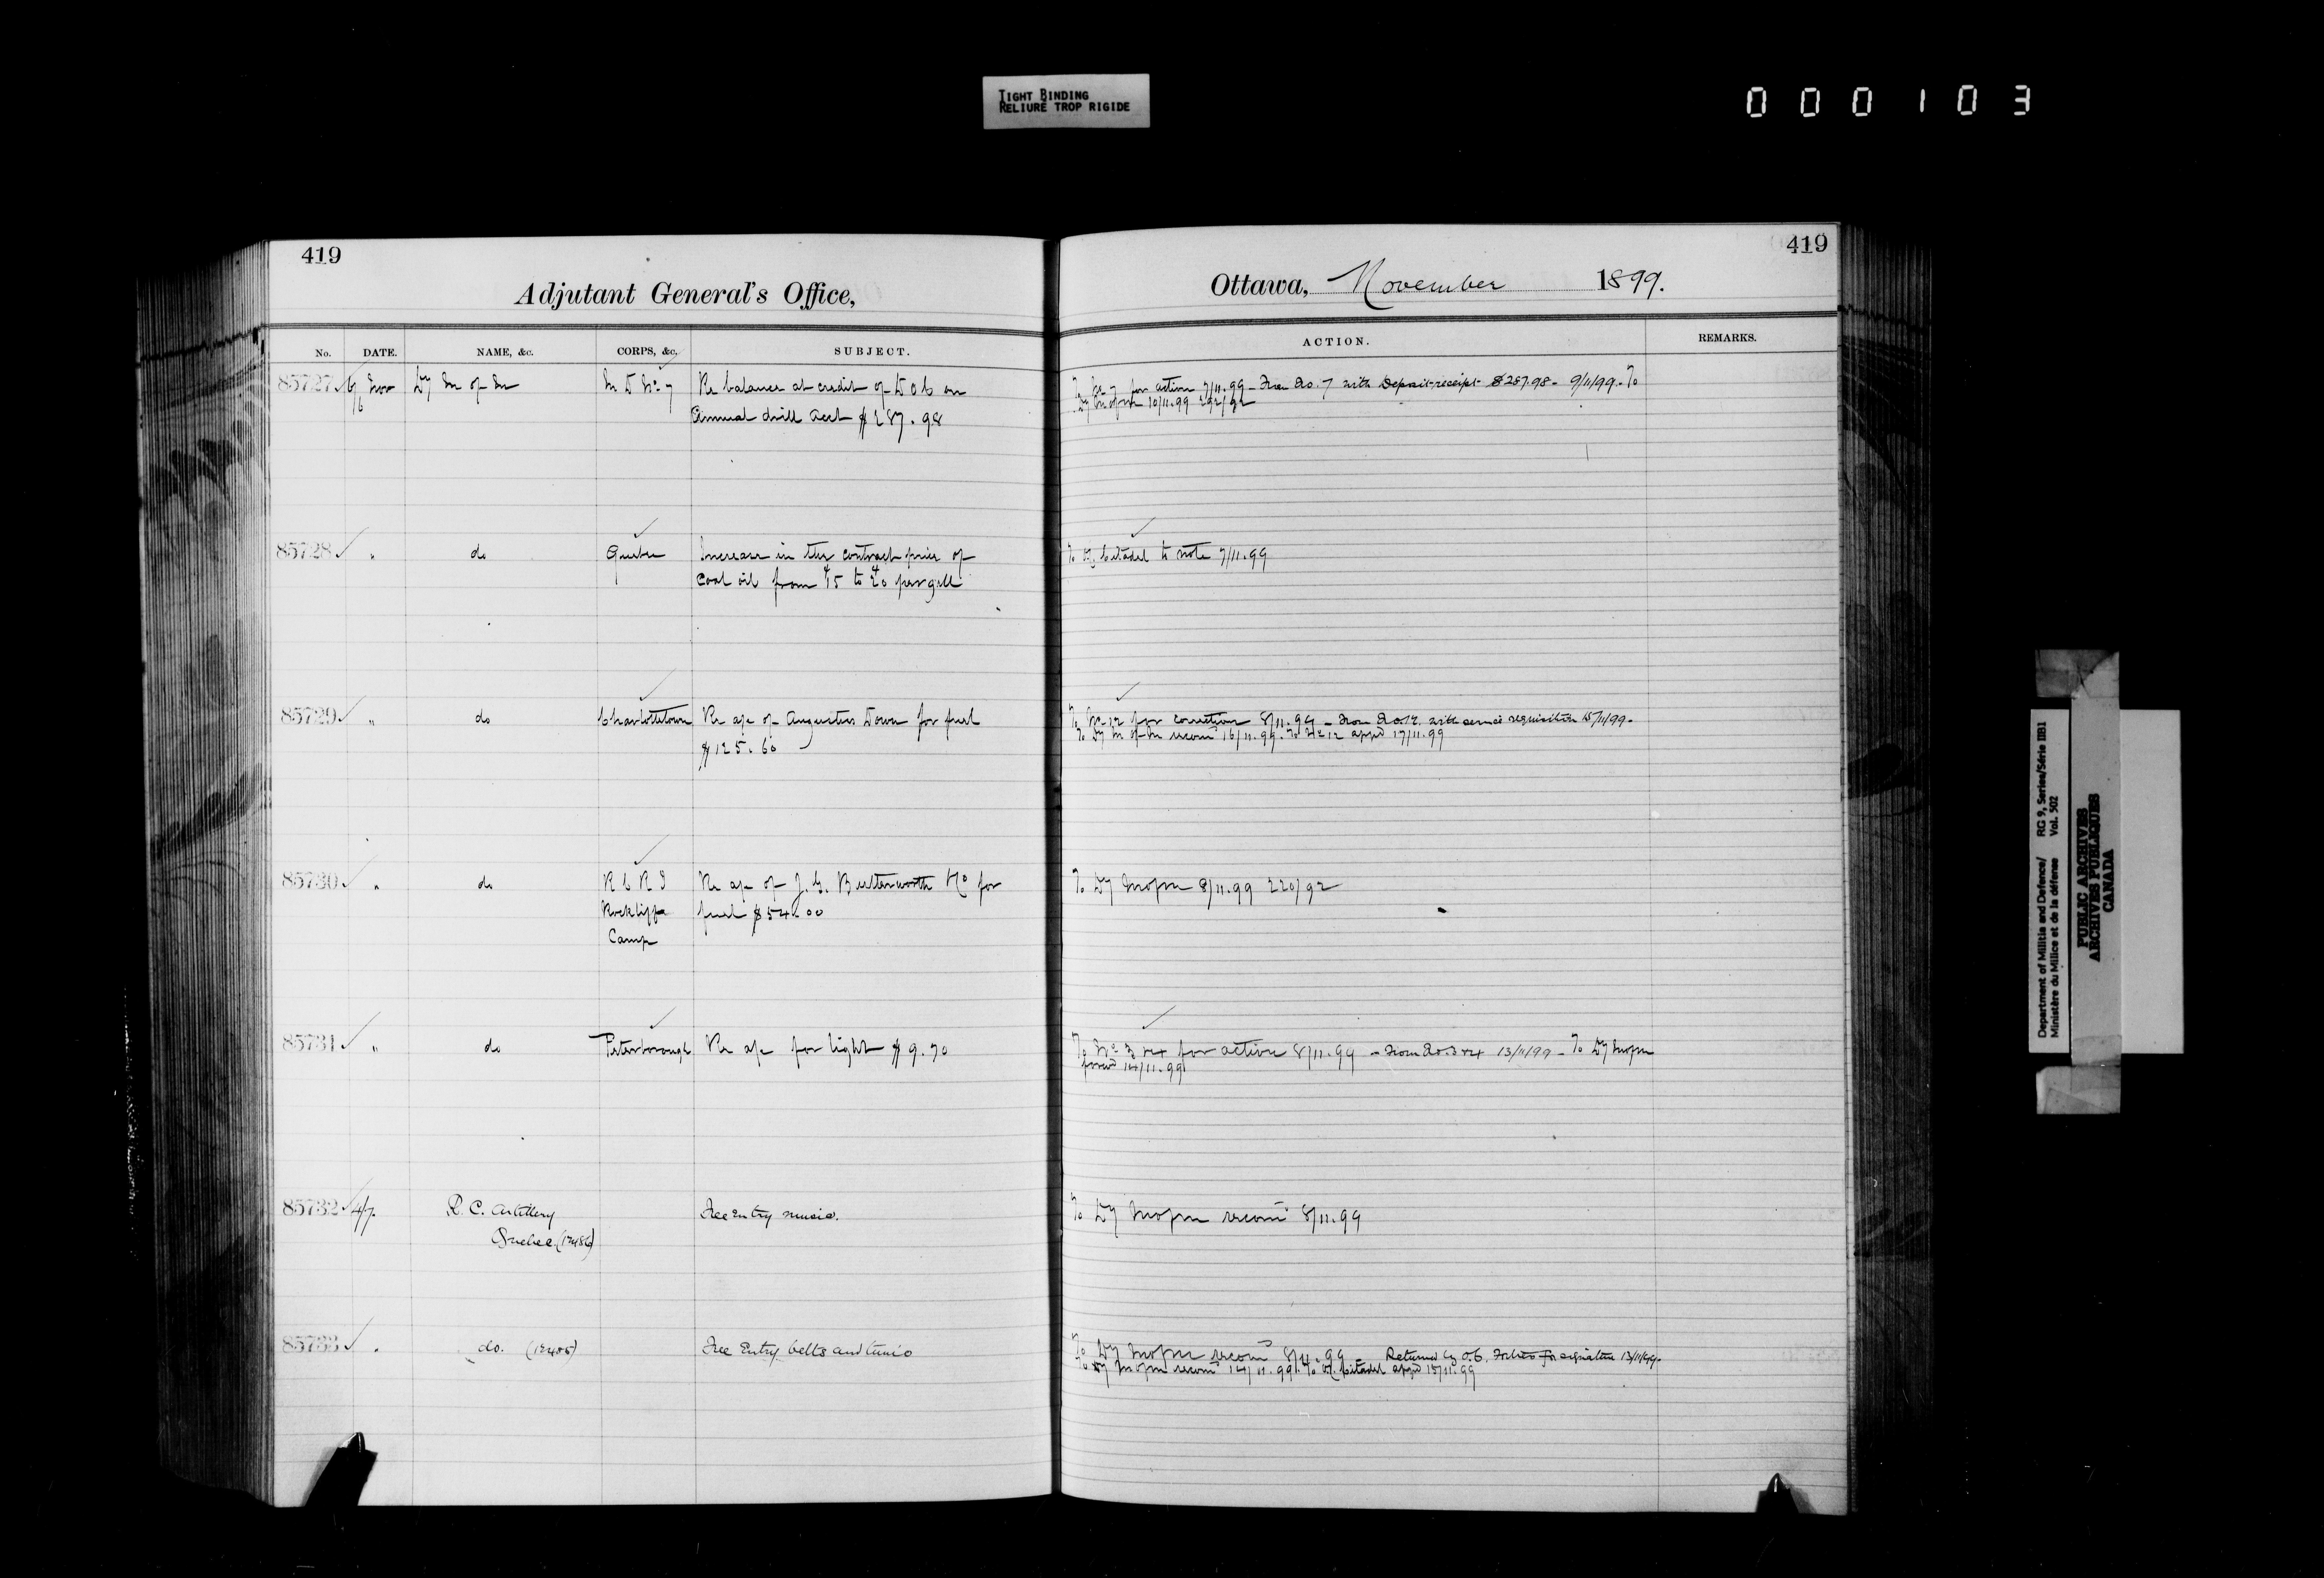 TIGHT BINDING
RELIURE TROP RIGIDE
000103
419
Adjutant General's Office,
No. DATE. NAME, &c. CORPS, &c. SUBJECT.
85727 6/6 Nov Dy M of M M D No 7 Re balance at credit of D O C on
Annual drill acct $287.98
85728 " do Quebec Increase in the contract price of
coal oil from 15 to 20 per gall
85729 " do Charlottetown Re a/c of Augustus Down for fuel
$125.60
85730 " do R C R I Re a/c of J. G. Butterworth & Co for
Rockliffe fuel $54.00
Camp
85731 " do Peterborough Re a/c for light $9.70
85732 4/7 R. C. Artillery Free entry music.
Quebec (12486)
85733 " do. (12485) Free Entry belts and tunic
419
Ottawa, November 1899.
ACTION. REMARKS.
To No 7 for action 7/11.99 - From No. 7 with Deposit receipt $287.98 - 9/11/99 - To
Dy M of M 10/11.99 292/92
To Citadel to note 7/11.99
To No 12 for correction 8/11.99 - From No. 12 with service requisition 15/11/99 -
To Dy M of M recom 16/11.99. To No 12 appd 17/11.99
To Dy M of M 8/11.99 220/92
To No 3 & 4 for action 8/11.99 - From No. 3 & 4 13/11/99 - To Dy M of M
forwd 14/11.99
To Dy M of M recom 8/11.99
To Dy M of M recom 8/11.99 - Returned by O.C. for signature 13/11/99.
To Dy M of M recom 14/11.99. To Citadel appd 15/11.99
Department of Militia and Defence/ RG 9, Series/Série IIB1
Ministère du Milice et de la défense Vol. 502
PUBLIC ARCHIVES
ARCHIVES PUBLIQUES
CANADA